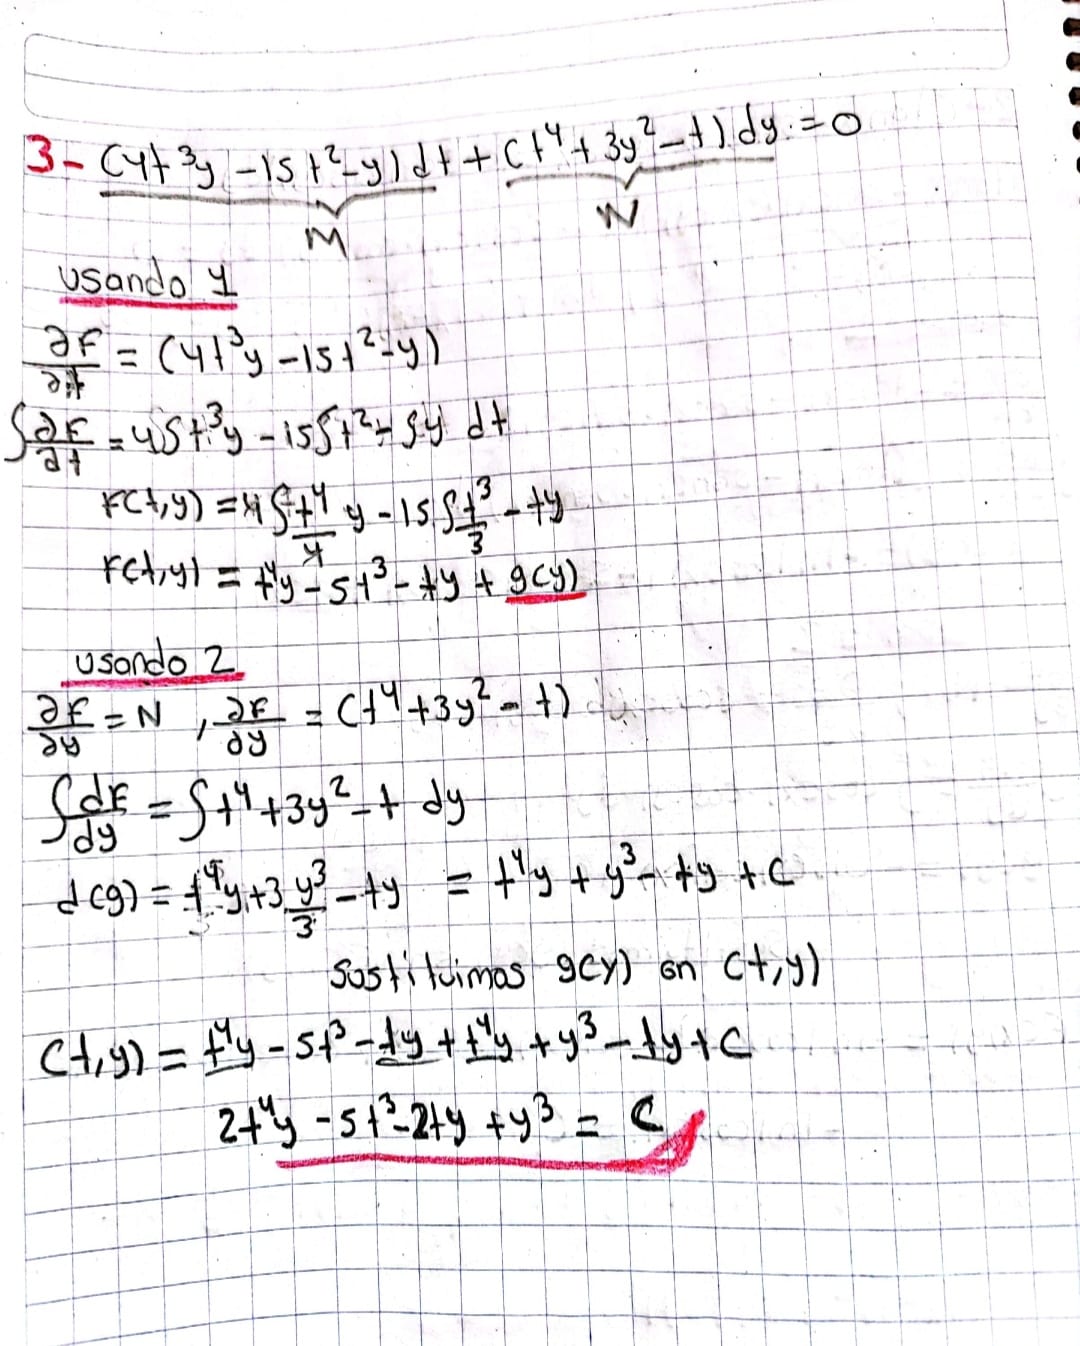 3- (4t³y - 15t² - y)dt + (t⁴ + 3y² - t).dy = 0
M N
usando 1
∂F/∂t = (4t³y - 15t² - y)
∫∂F/∂t = 4∫t³y - 15∫t² - ∫y dt
F(t,y) = 4∫t⁴/4 y - 15∫t³/3 - ty
F(t,y) = t⁴y - 5t³ - ty + g(y)
usando 2
∂F/∂y = N , ∂F/∂y = (t⁴ + 3y² - t)
∫dF/dy = ∫t⁴ + 3y² - t dy
d(g) = t⁴y + 3y³/3 - ty = t⁴y + y³ - ty + C
Sostituimos g(y) en (t,y)
(t,y) = t⁴y - 5t³ - ty + t⁴y + y³ - ty + C
2t⁴y - 5t³ - 2ty + y³ = C